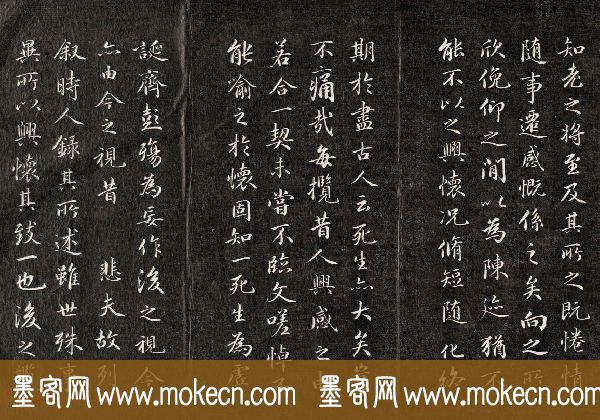 知老之将至及其所之既惓情
随事遷感慨係之矣向之所
欣俛仰之間以為陳迹猶不
能不以之興懷况脩短随化終
期於盡古人云死生亦大矣豈
不痛哉每攬昔人興感之由
若合一契未嘗不臨文嗟悼不
能喻之於懷固知一死生為虛
誕齊彭殤為妄作後之視今
亦由今之視昔 悲夫故列
叙時人錄其所述雖世殊事
異所以興懷其致一也後之攬
墨客网 www.mokecn.com 墨客网 www.mokecn.com 墨客网 www.mokecn.com